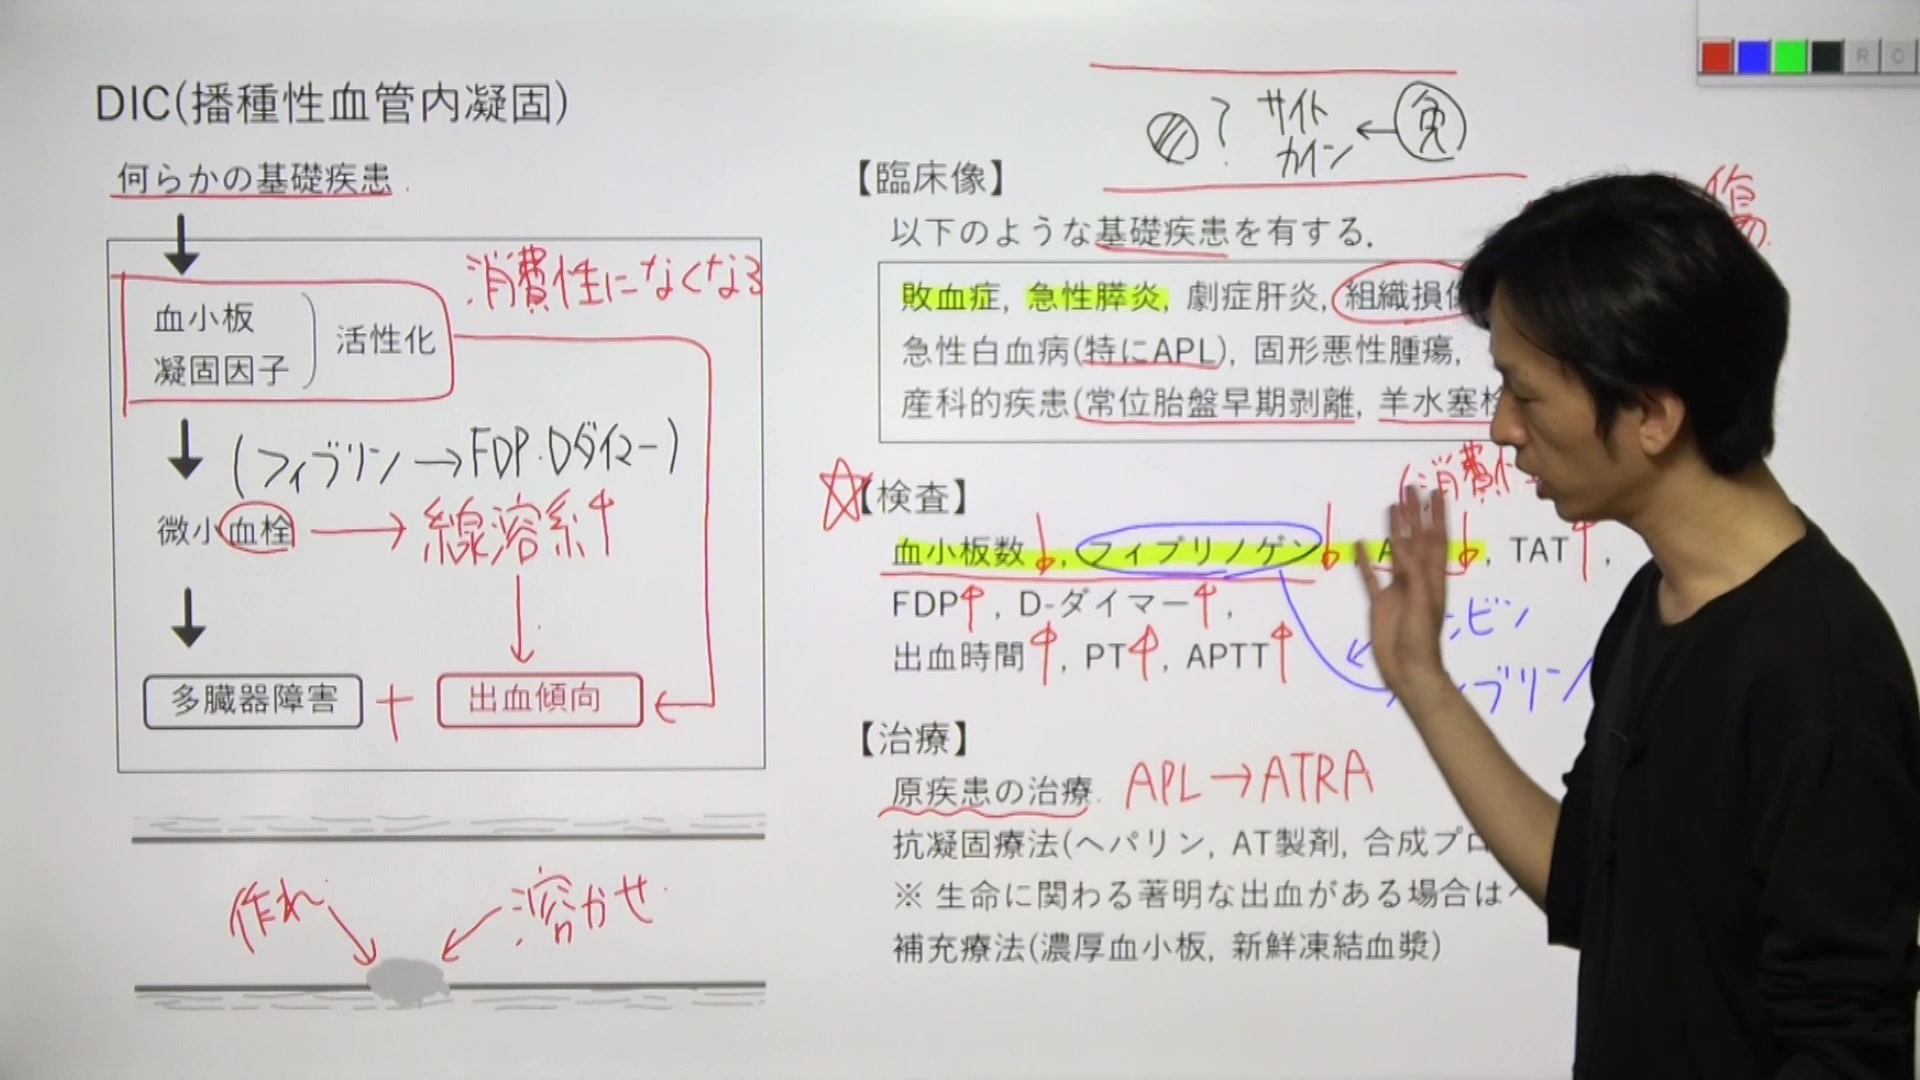 DIC(播種性血管内凝固)
何らかの基礎疾患
消費性になくなる
血小板
凝固因子
活性化
(フィブリン→FDP・Dダイマー)
微小血栓 → 線溶系↑
多臓器障害 + 出血傾向
作れ
溶かせ
? サイト
カイン ← 免
【臨床像】
傷
以下のような基礎疾患を有する.
敗血症, 急性膵炎, 劇症肝炎, 組織損傷
急性白血病(特にAPL), 固形悪性腫瘍,
産科的疾患(常位胎盤早期剥離, 羊水塞栓
☆【検査】
(消費性
血小板数↓, フィブリノゲン↓, A ↓, TAT↑,
FDP↑, D-ダイマー↑,
出血時間↑, PT↑, APTT↑
ビン
ブリン
【治療】
原疾患の治療. APL→ATRA
抗凝固療法(ヘパリン, AT製剤, 合成プロ
※ 生命に関わる著明な出血がある場合はヘ
補充療法(濃厚血小板, 新鮮凍結血漿)
R C